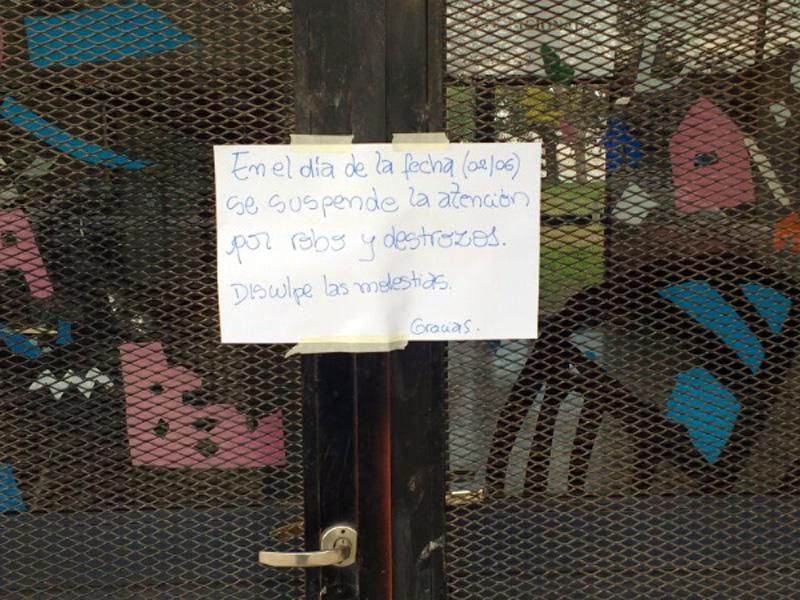 En el día de la fecha (02/06)
se suspende la atención
por robo y destrozos.
Disculpe las molestias.
Gracias.